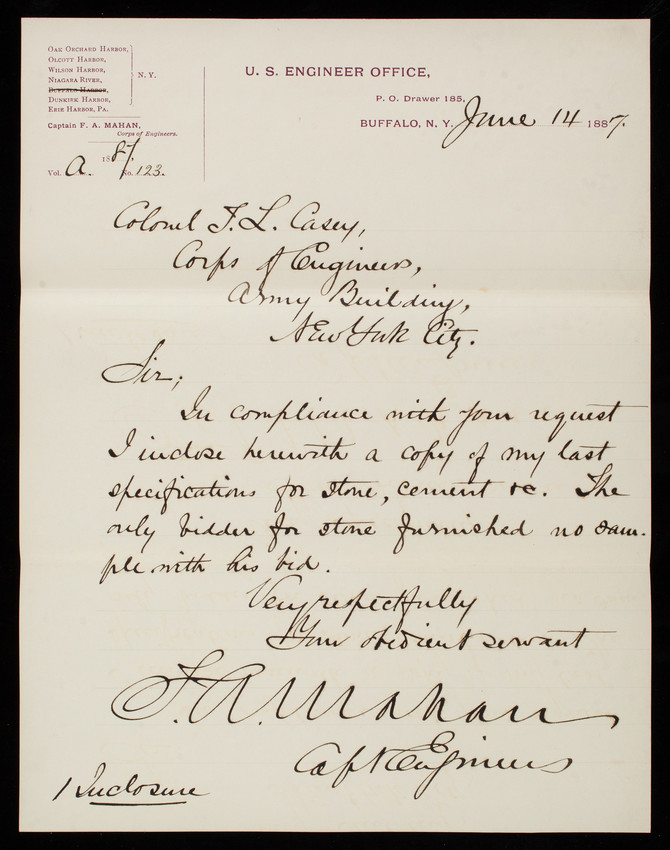 Oak Orchard Harbor,
Olcott Harbor,
Wilson Harbor,
Niagara River,
Buffalo Harbor,
Dunkirk Harbor,
Erie Harbor, Pa.
N. Y.
Captain F. A. MAHAN,
Corps of Engineers.
1887.
Vol. A. No. 123.
U. S. ENGINEER OFFICE,
P. O. Drawer 185,
BUFFALO, N. Y. June 14 1887.
Colonel T. L. Casey,
Corps of Engineers,
Army Building,
New York City.
Sir;
In compliance with your request
I inclose herewith a copy of my last
specifications for stone, cement &c. The
only bidder for stone furnished no sam-
ple with his bid.
Very respectfully
Your obedient servant
F. A. Mahan
Capt Engineers
1 Inclosure